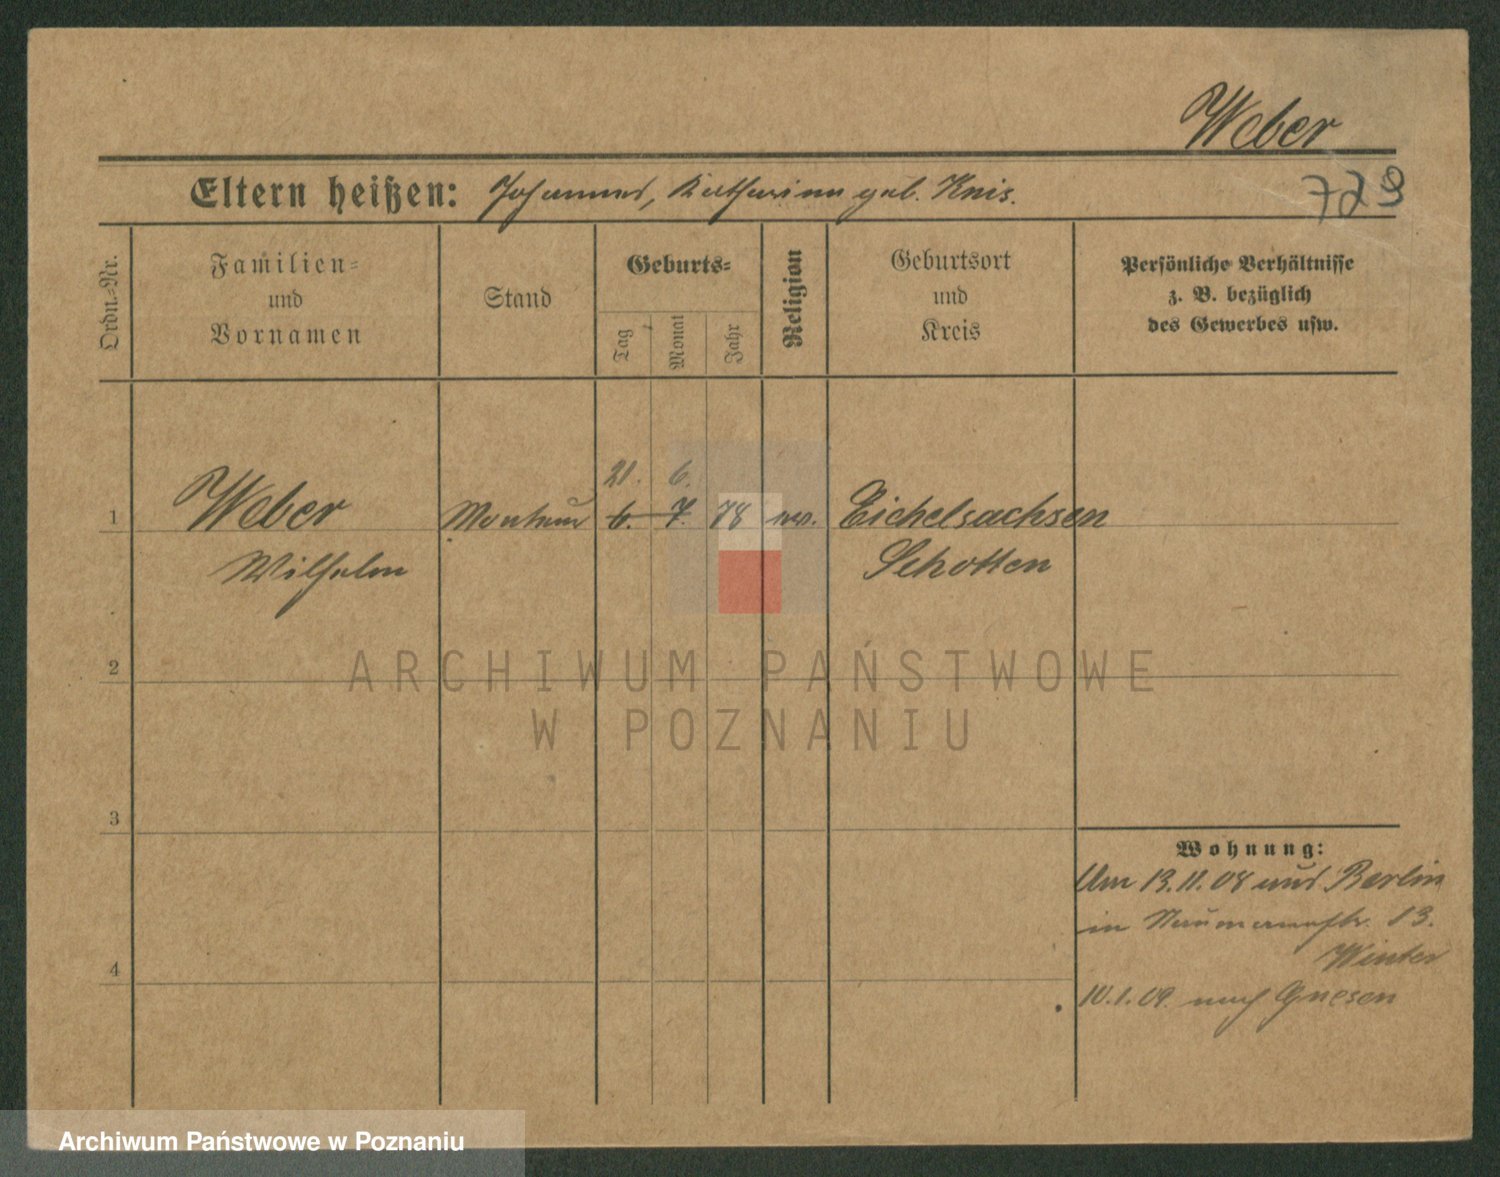 Weber
Eltern heißen: Johannes, Katharina geb. Knis.
729
Ordn.-Nr.
Familien-
und
Vornamen
Stand
Geburts-
Tag
Monat
Jahr
Religion
Geburtsort
und
Kreis
Persönliche Verhältnisse
z. B. bezüglich
des Gewerbes usw.
21. 6.
1 Weber Monteur 6. 7. 78 ev. Eichelsachsen
Wilhelm Schotten
ARCHIWUM PAŃSTWOWE
W POZNANIU
2
3
4
Wohnung:
Am 13.11.08 aus Berlin
in Naumannstr. 13.
Winter
10.1.09. nach Gnesen
Archiwum Państwowe w Poznaniu